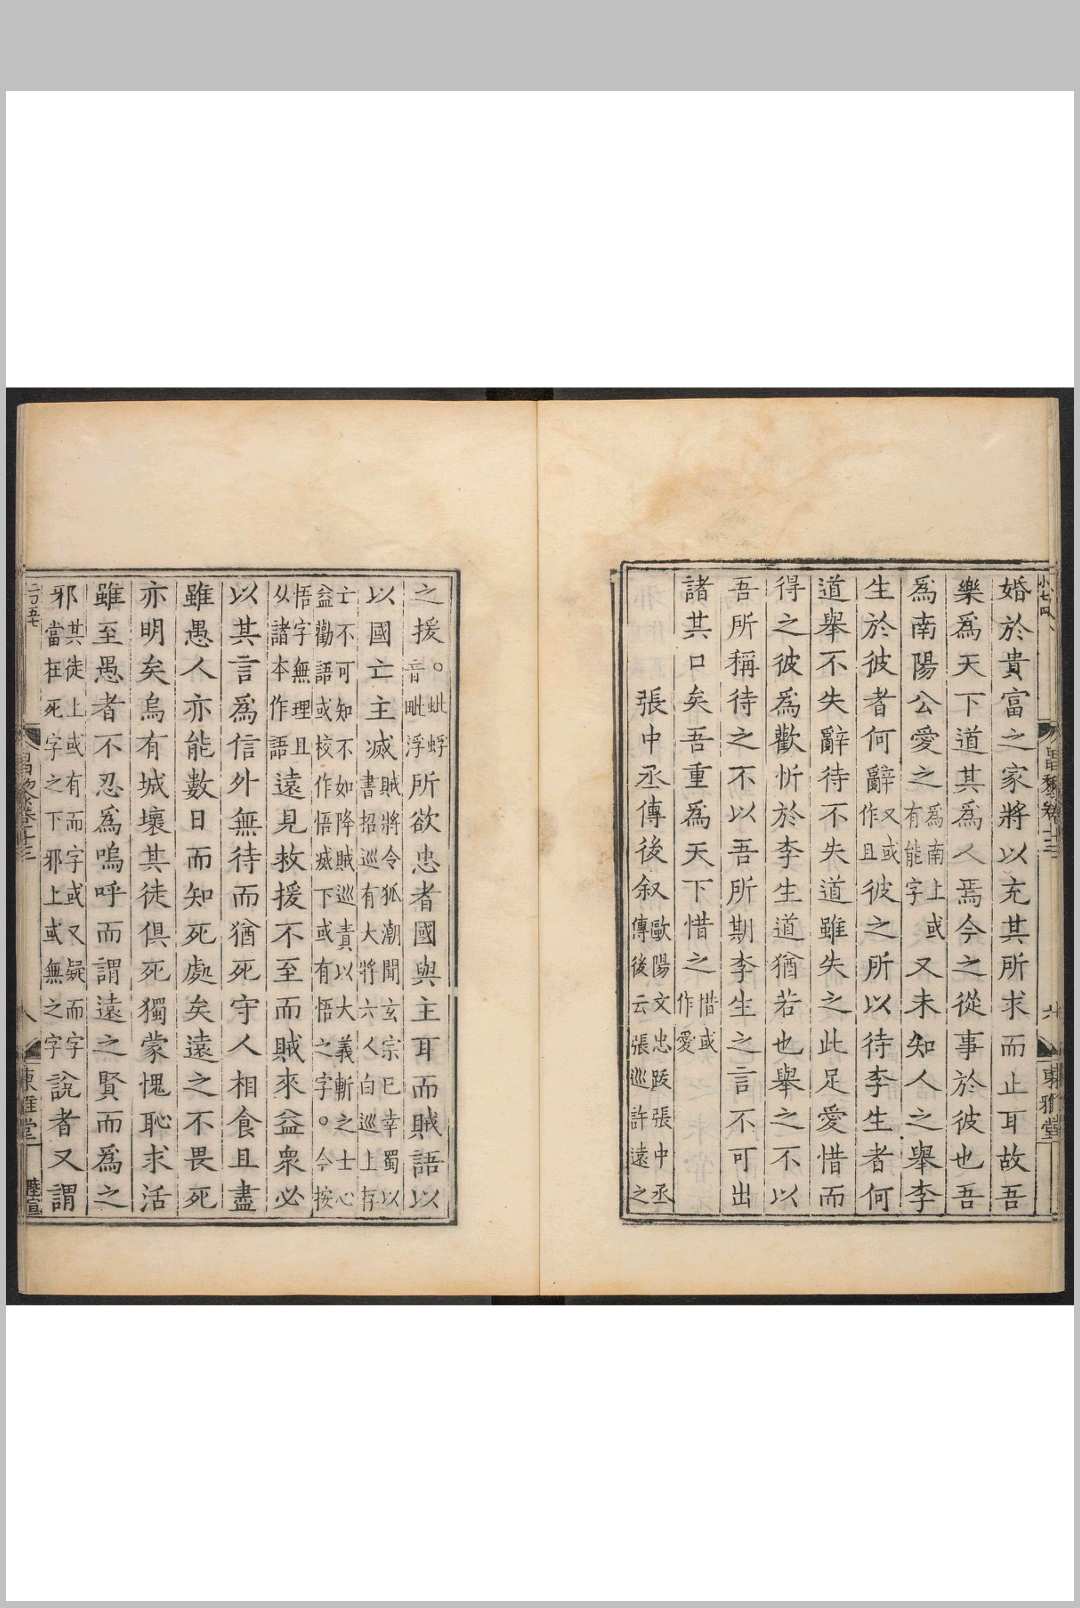 婚於貴富之家將以充其所求而止耳故吾
樂爲天下道其爲人焉今之從事於彼也吾
爲南陽公愛之爲南上或有能字又未知人之舉李
生於彼者何辭又或作且彼之所以待李生者何
道舉不失辭待不失道雖失之此足愛惜而
得之彼爲歡忻於李生道猶若也舉之不以
吾所稱待之不以吾所期李生之言不可出
諸其口矣吾重爲天下惜之惜或作愛
張中丞傳後叙歐陽文忠跋張中丞傳後云張巡許遠之
昌黎卷十三
東雅堂
之援○蚍蜉音毗浮所欲忠者國與主耳而賊語以
以國亡主滅賊將令狐潮聞玄宗已幸蜀以書招巡有大將六人白巡上存
亡不可知不如降賊巡責以大義斬之士心益勸語或校作悟滅下或有悟之字○今按
悟字無理且从諸本作語遠見救援不至而賊來益衆必
以其言爲信外無待而猶死守人相食且盡
雖愚人亦能數日而知死處矣遠之不畏死
亦明矣烏有城壞其徒俱死獨蒙愧恥求活
雖至愚者不忍爲嗚呼而謂遠之賢而爲之
邪其徒上或有而字或又疑而字當在死字之下邪上或無之字說者又謂
昌黎卷十三
八
東雅堂